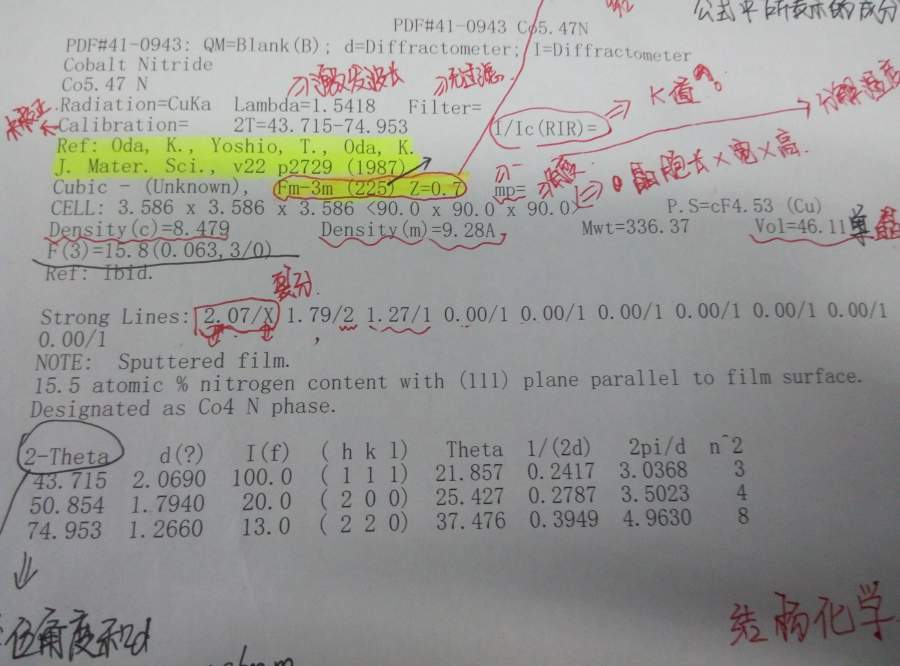 公式平所表示的成分
PDF#41-0943 Co5.47N
PDF#41-0943: QM=Blank(B); d=Diffractometer; I=Diffractometer
Cobalt Nitride
Co5.47 N
激发波长
无过滤.
Radiation=CuKa Lambda=1.5418 Filter=
K值
Calibration= 2T=43.715-74.953 I/Ic(RIR)=
Ref: Oda, K., Yoshio, T., Oda, K.
J. Mater. Sci., v22 p2729 (1987)
Cubic - (Unknown), Fm-3m (225) Z=0.7 mp=
晶胞长×宽×高.
CELL: 3.586 x 3.586 x 3.586 <90.0 x 90.0 x 90.0> P.S=cF4.53 (Cu)
Density(c)=8.479 Density(m)=9.28A Mwt=336.37 Vol=46.11
F(3)=15.8(0.063,3/0)
Ref: Ibid.
Strong Lines: 2.07/X 1.79/2 1.27/1 0.00/1 0.00/1 0.00/1 0.00/1 0.00/1 0.00/1
0.00/1
NOTE: Sputtered film.
15.5 atomic % nitrogen content with (111) plane parallel to film surface.
Designated as Co4 N phase.
2-Theta d(?) I(f) ( h k l) Theta 1/(2d) 2pi/d n^2
43.715 2.0690 100.0 ( 1 1 1) 21.857 0.2417 3.0368 3
50.854 1.7940 20.0 ( 2 0 0) 25.427 0.2787 3.5023 4
74.953 1.2660 13.0 ( 2 2 0) 37.476 0.3949 4.9630 8
结构化学
位角度和d